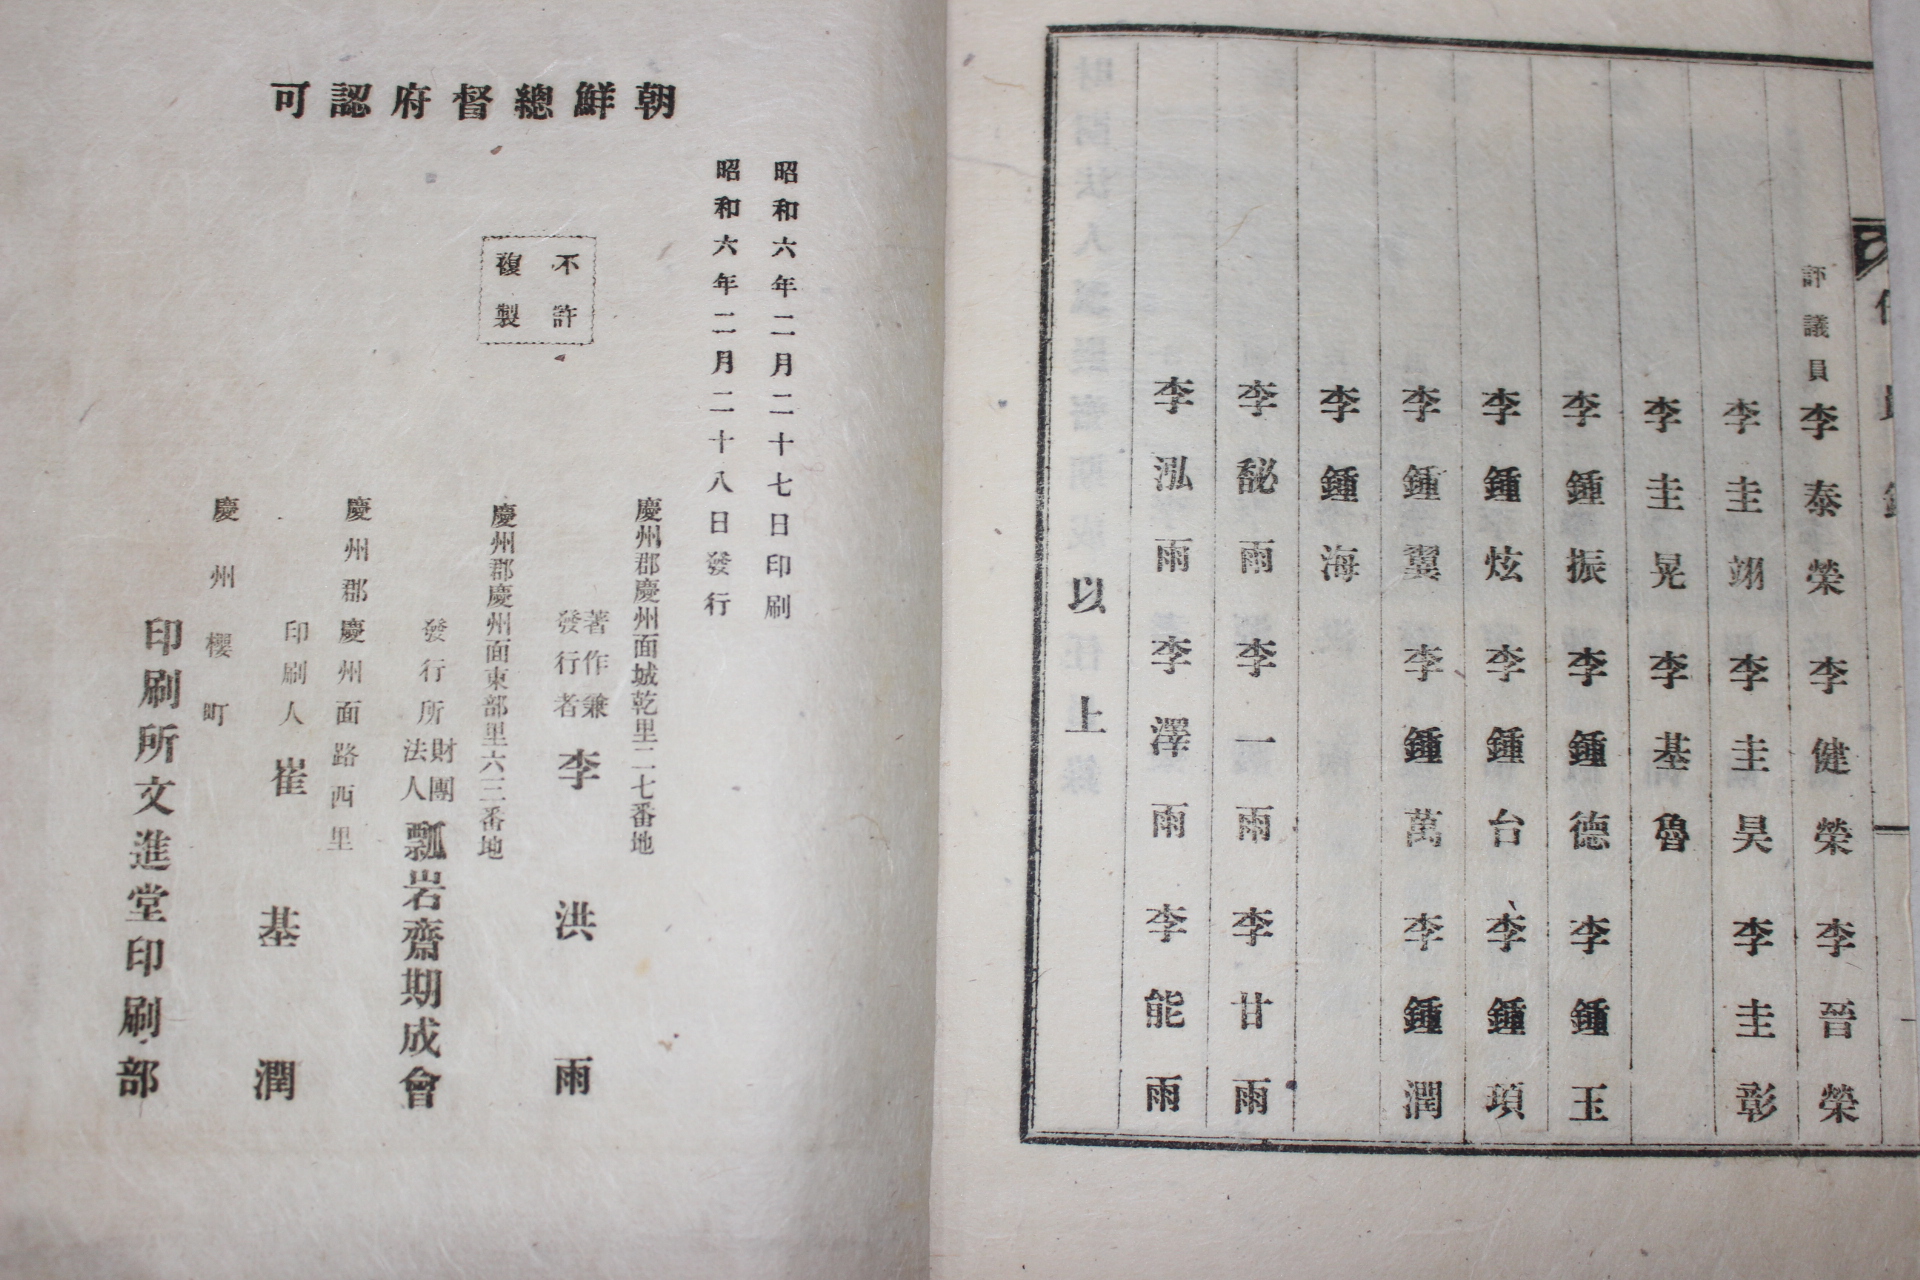 任員錄
評議員 李泰榮 李健榮 李晉榮
李圭翊 李圭昊 李圭彰
李圭晃 李基魯
李鍾振 李鍾德 李鍾玉
李鍾炫 李鍾台 李鍾頊
李鍾翼 李鍾萬 李鍾潤
李鍾海
李馝雨 李一雨 李甘雨
李泓雨 李澤雨 李能雨
以上
朝鮮總督府認可
昭和六年二月二十七日印刷
昭和六年二月二十八日發行
不許
複製
慶州郡慶州面城乾里二七番地
著作兼
發行者 李洪雨
慶州郡慶州面東部里六三番地
發行所 財團
法人 瓢岩齋期成會
慶州郡慶州面路西里
印刷人 崔基潤
慶州櫻町
印刷所文進堂印刷部